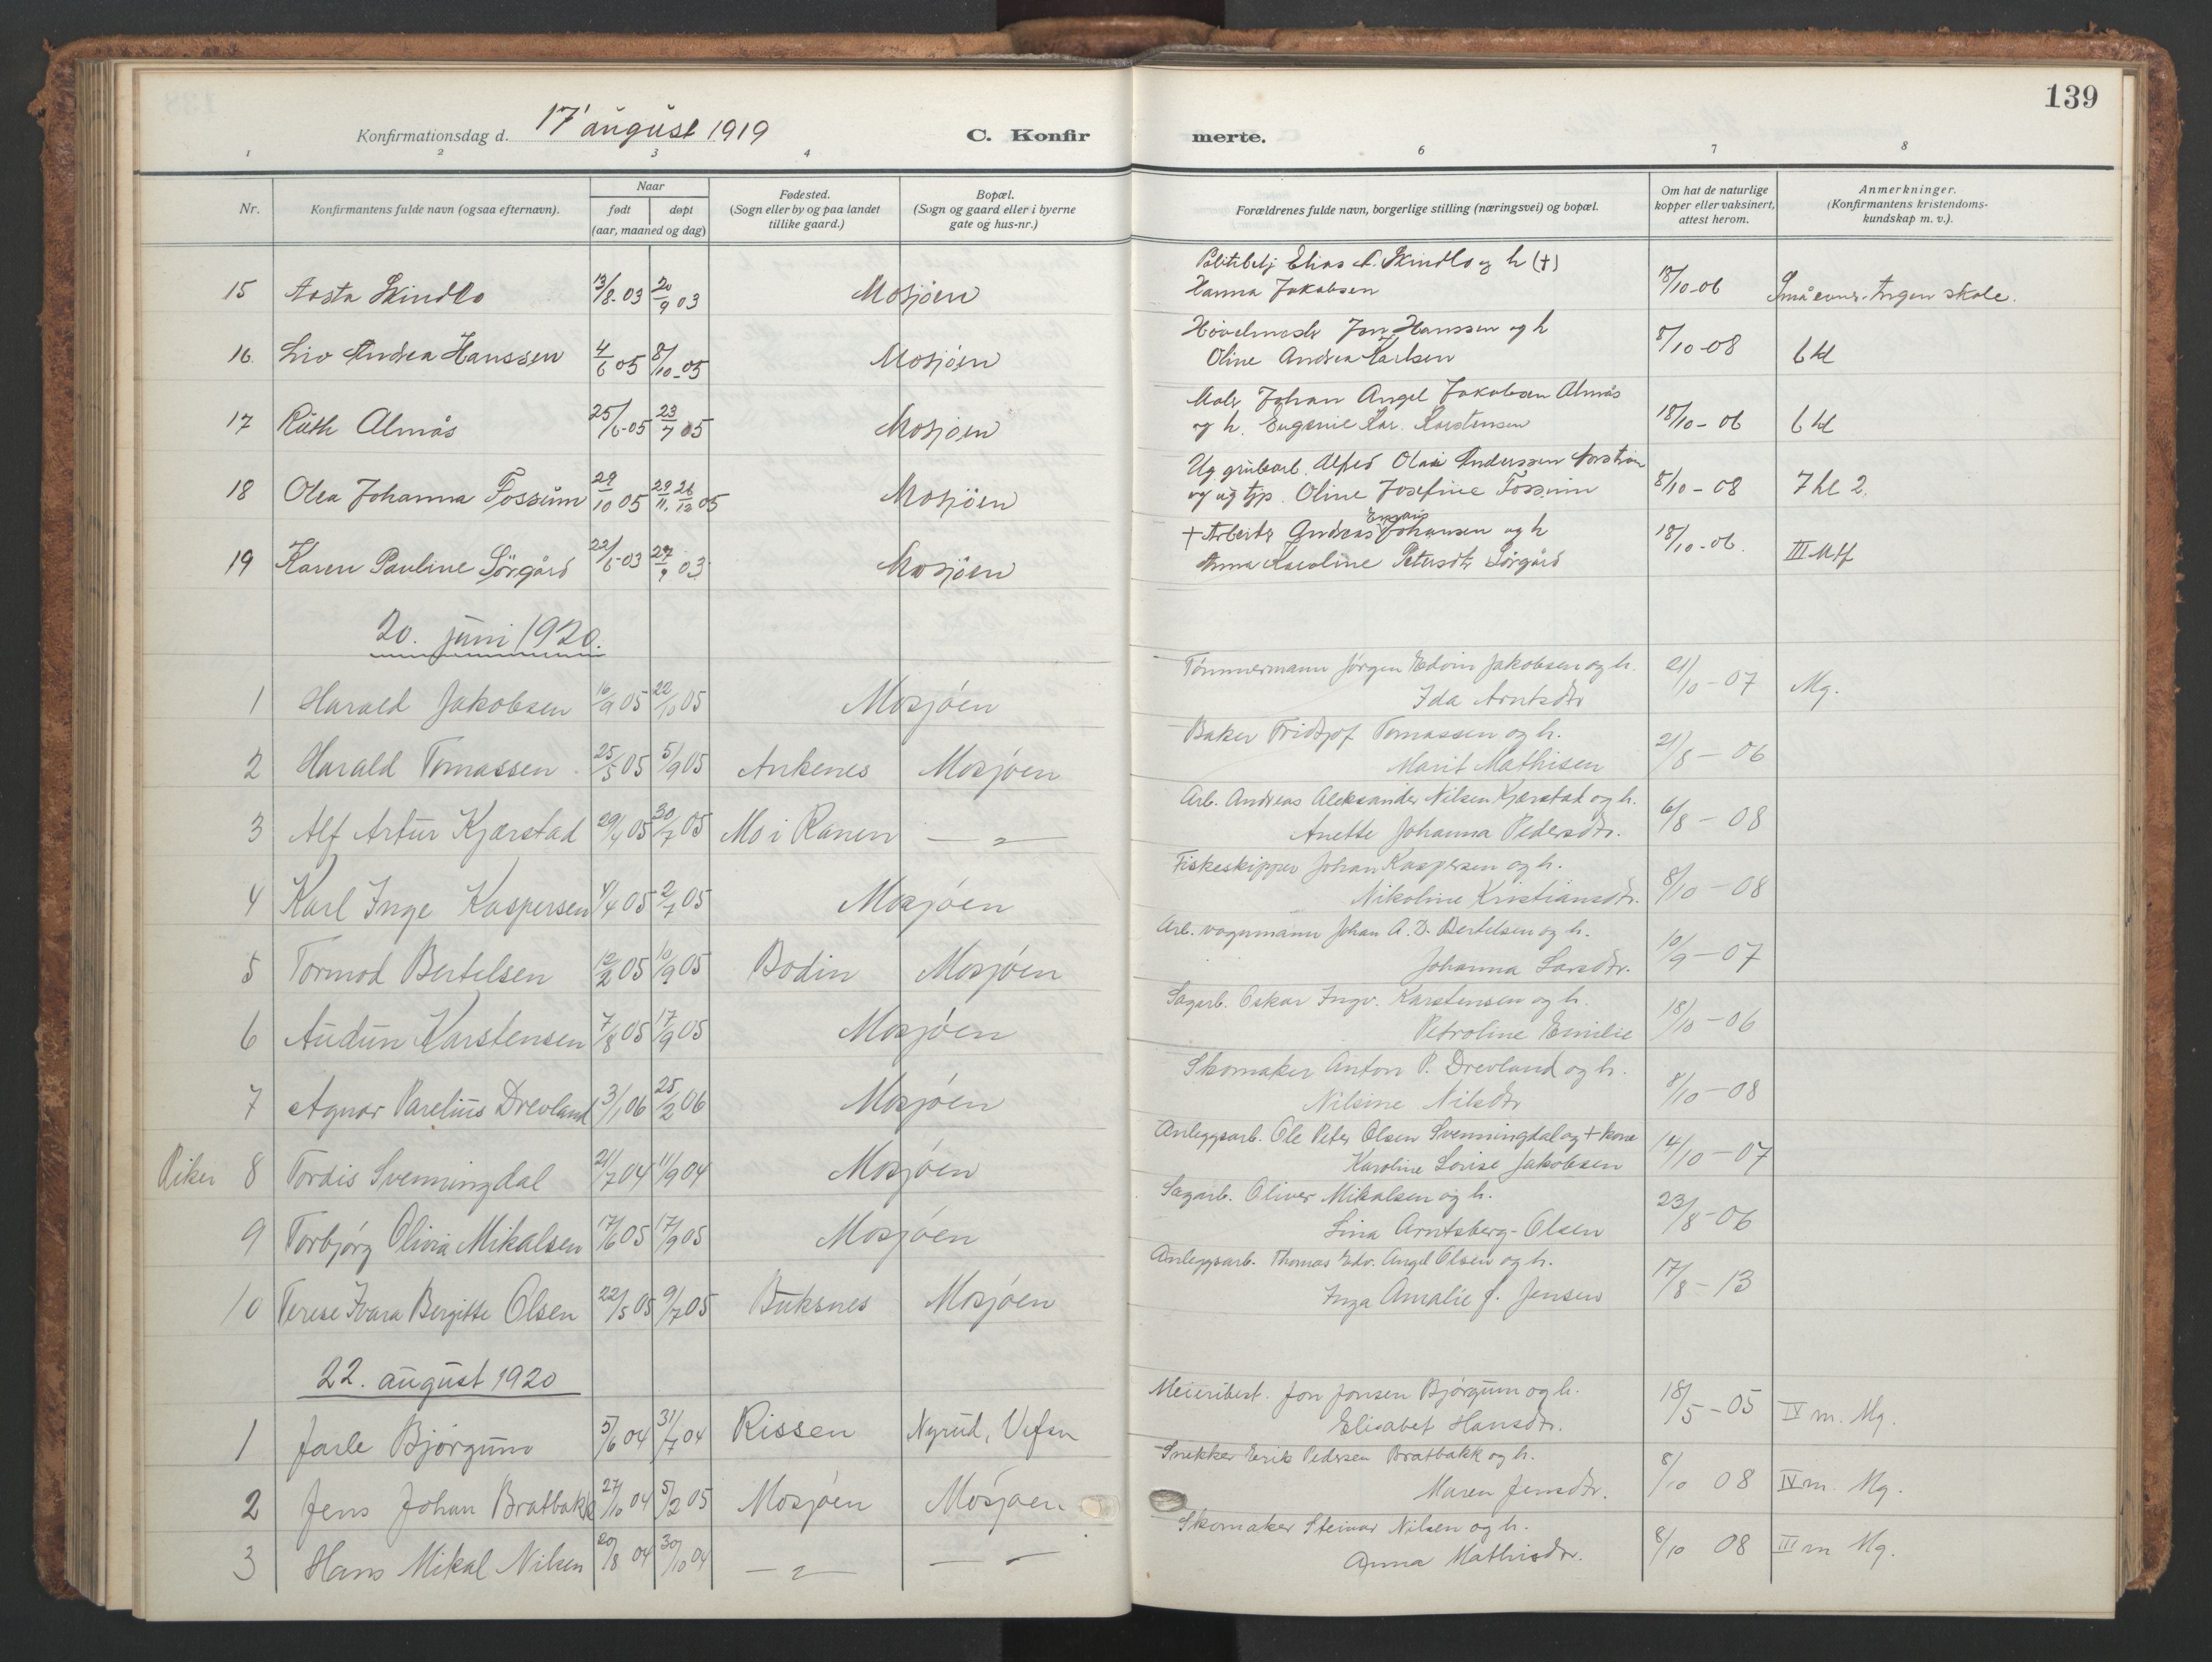 139
Konfirmationsdag d. 17' august 1919 C. Konfirmerte.
1 2 3 4 6 7 8
Nr. Konfirmantens fulde navn (ogsaa efternavn). Naar født døpt (aar, maaned og dag) Fødested. (Sogn eller by og paa landet tillike gaard.) Bopæl. (Sogn og gaard eller i byerne gate og hus-nr.) Forældrenes fulde navn, borgerlige stilling (næringsvei) og bopæl. Om hat de naturlige kopper eller vaksinert, attest herom. Anmerkninger. (Konfirmantens kristendoms- kundskap m. v.).
15 Aasta Skindlo 13/8-03 20/9 03 Mosjøen Elias A. Skindlo og h (+)
Hanna Jakobsen 18/10-06 Ingen skole.
16. Liv Andrea Hanssen 4/6 05 8/10-05 Mosjøen Jon Hanssen og h
Oline Andrea Karlsen 8/10-08 6 kl
17 Ruth Almås 25/6-05 23/7 05 Mosjøen Maler Johan Angel Jakobsen Almås
og h. Eugenie Kar. Karstensen 18/10-06 6 kl
18 Olea Johanna Fossum 29/10 05 29/11. 26/12 05 Mosjöen Ug. grubearb. Alfred Olai Anderssen
og ug tjp. Oline Josefine Fossum 8/10-08 7 kl 2.
19 Karen Pauline Sörgård 22/6-03 27/9 03 Mosjöen + Arbeider Andreas Johansen og h
Anna Karoline Petersdtr Sörgård 18/10-06. III Mtf
20. juni 1920.
1 Harald Jakobsen 16/9 05 22/10 05 Mosjøen Tømmermann Jørgen Edvin Jakobsen og h.
Ida Arntsdtr 21/10-07 Mg.
2 Harald Tomassen 25/5 05 5/9 05 Ankenes Mosjøen Baker Fridtjof Tomassen og h.
Marit Mathisen 21/8-06
3 Alf Artur Kjærstad 29/4 05 30/7 05 Mo i Ranen — " — Arb. Andreas Aleksander Nilsen Kjærstad og h.
Anette Johanna Pedersdtr. 6/8-08
4 Karl Inge Kaspersen 9/4 05 2/7 05 Mosjøen Fiskeskipper Johan Kaspersen og h.
Nikoline Kristiansdtr. 8/10-08
5 Tormod Bertelsen 12/2 05 10/9 05 Bodin Mosjøen Arb. vognmann Johan A. D. Bertelsen og h.
Johanna Larsdtr. 10/9-07
6 Audun Karstensen 7/8 05 17/9 05 Mosjøen Sagarb. Oskar Ingv. Karstensen og h.
Petroline Emilie 18/10-06
7 Agnar Parelius Drevland 3/1 06 25/2 06 Mosjøen Skomaker Anton P. Drevland og h.
Nilsine Nilsdtr 8/10-08
Piker 8 Tordis Svenningdal 21/7 04 11/9 04 Mosjøen Anleggsarb. Ole Peter Olsen Svenningdal og + kone
Karoline Lovise Jakobsen 14/10-07
9 Torbjørg Olivia Mikalsen 17/6 05 17/9 05 Mosjøen Sagarb. Oliver Mikalsen og h.
Lina Arntsberg-Olsen 23/8-06
10 Terese Ivara Bergitte Olsen 22/5 05 9/7 05 Buksnes Mosjøen Anleggsarb. Thomas Edv. Angel Olsen og h.
Inga Amalie f. Jensen 17/8-13
22. august 1920
1 Jarle Bjørgum 5/6 04 31/7 04 Rissen Nyrud, Vefsn Meieribest. Jon Jonsen Bjørgum og h.
Elisabet Hansdtr. 18/5-05 IV m. Mg.
2 Jens Johan Bratbakk 27/10 04 5/2 05 Mosjøen Mosjøen Snekker Erik Pedersen Bratbakk og h.
Maren Jensdtr. 8/10 08 IV m. Mg.
3 Hans Mikal Nilsen 20/8 04 30/10 04 — " — — " — Skomaker Steinar Nilsen og h.
Anna Mathisdtr. 8/10 08 III m Mg.